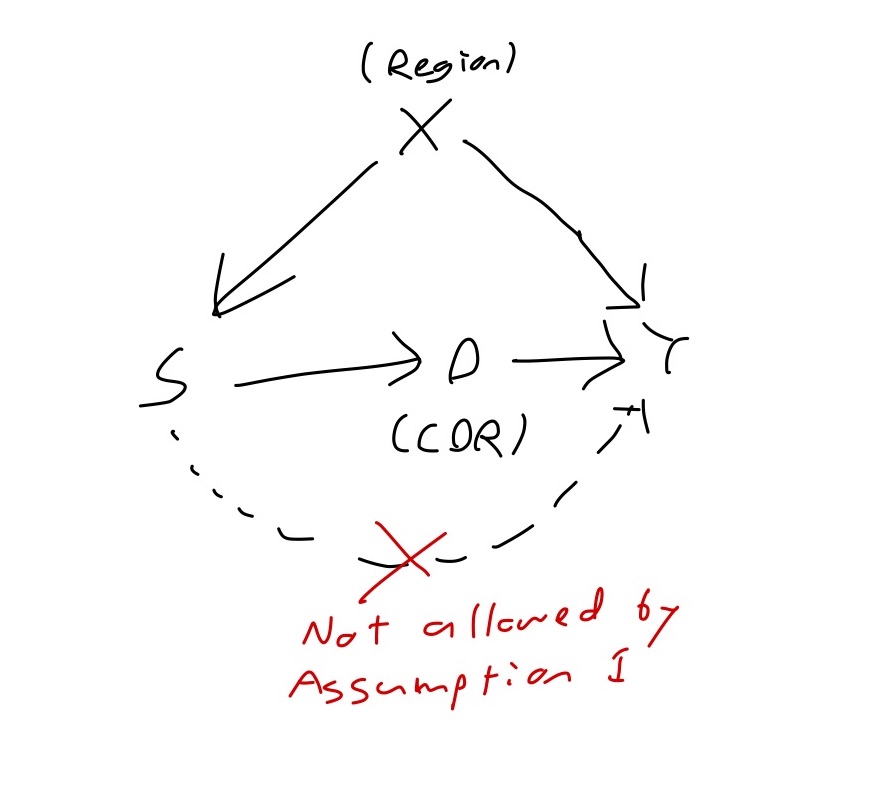 (Region)
X
S
D
Y
(CDR)
Not allowed by
Assumption I